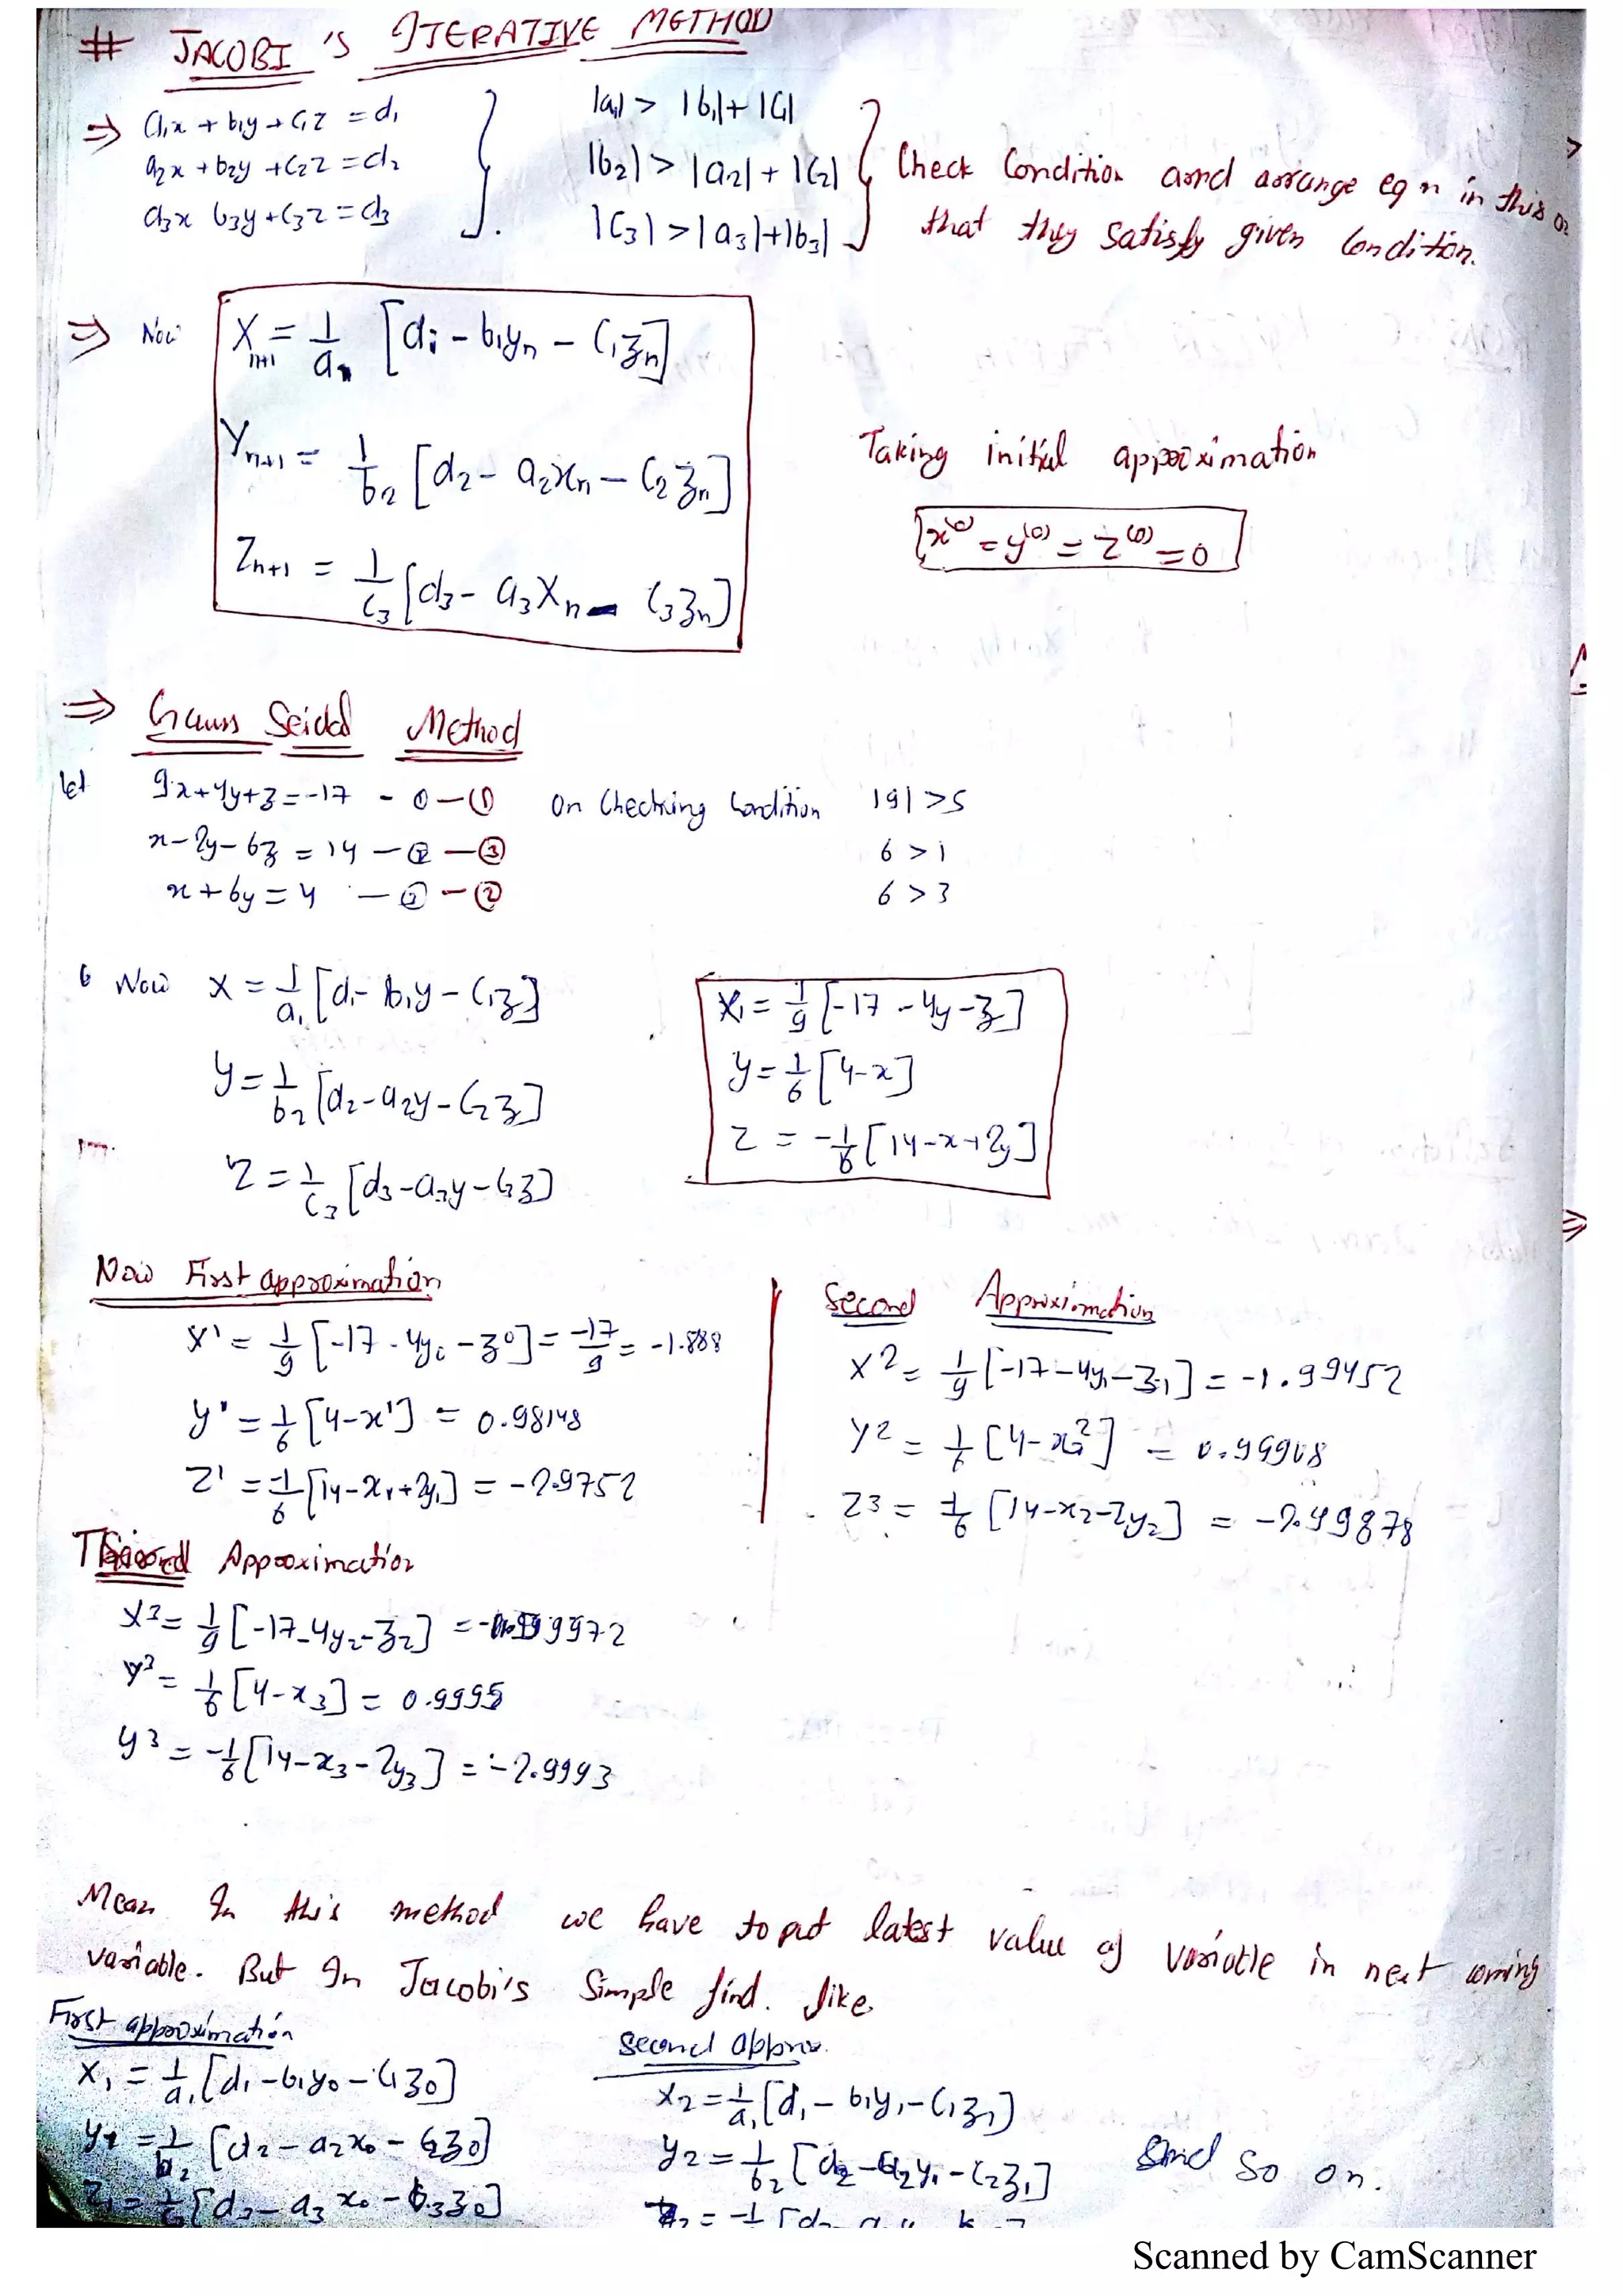 # JACOBI 's ITERATIVE METHOD
⇒ a₁x + b₁y + c₁z = d₁
a₂x + b₂y + c₂z = d₂
a₃x b₃y + c₃z = d₃
|a₁| > |b₁| + |c₁|
|b₂| > |a₂| + |c₂|
|c₃| > |a₃| + |b₃|
Check Condition and arrange eqn in this
that they satisfy given Condition.
⇒ Now Xₙ₊₁ = 1/a₁ [d₁ - b₁yₙ - c₁zₙ]
Yₙ₊₁ = 1/b₂ [d₂ - a₂xₙ - c₂zₙ]
Zₙ₊₁ = 1/c₃ [d₃ - a₃Xₙ - c₃zₙ]
Taking initial approximation
x⁽⁰⁾ = y⁽⁰⁾ = z⁽⁰⁾ = 0
⇒ Gauss Seidal Method
let 9x + 4y + z = -17 - ① - ①
x - 2y - 6z = 14 - ② - ③
x + 6y = 4 - ③ - ②
On Checking Condition |9| > 5
6 > 1
6 > 3
Now X = 1/a₁ [d₁ - b₁y - c₁z]
y = 1/b₂ [d₂ - a₂y - c₂z]
Z = 1/c₃ [d₃ - a₃y - c₃z]
X₁ = 1/9 [-17 - 4y - z]
y = 1/6 [4 - x]
Z = -1/6 [14 - x + 2y]
Now First approximation
X¹ = 1/9 [-17 - 4y₀ - z⁰] = -17/9 = -1.888
y¹ = 1/6 [4 - x¹] = 0.98148
Z¹ = -1/6 [14 - x₁ + 2y₁] = -2.9752
Second Approximation
X² = 1/9 [-17 - 4y₁ - z₁] = -1.99452
Y² = 1/6 [4 - x²] = 0.99908
Z³ = 1/6 [14 - x₂ - 2y₂] = -2.99878
Approximation
X³ = 1/9 [-17 - 4y₂ - z₂] =
y³ = 1/6 [4 - x₃] = 0.9995
y³ = -1/6 [14 - x₃ - 2y₃] = -2.9993
Mean In this method we have to put latest value of variable in next coming
variable. But In Jacobi's Simple find. like
First approximation
X₁ = 1/a₁ [d₁ - b₁y₀ - c₁z₀]
y₁ = 1/b₂ [d₂ - a₂x₀ - c₂z₀]
Z₁ = 1/c₃ [d₃ - a₃x₀ - b₃z₀]
Second approx.
X₂ = 1/a₁ [d₁ - b₁y₁ - c₁z₁]
y₂ = 1/b₂ [d₂ - a₂y₁ - c₂z₁]
and so on.
Scanned by CamScanner